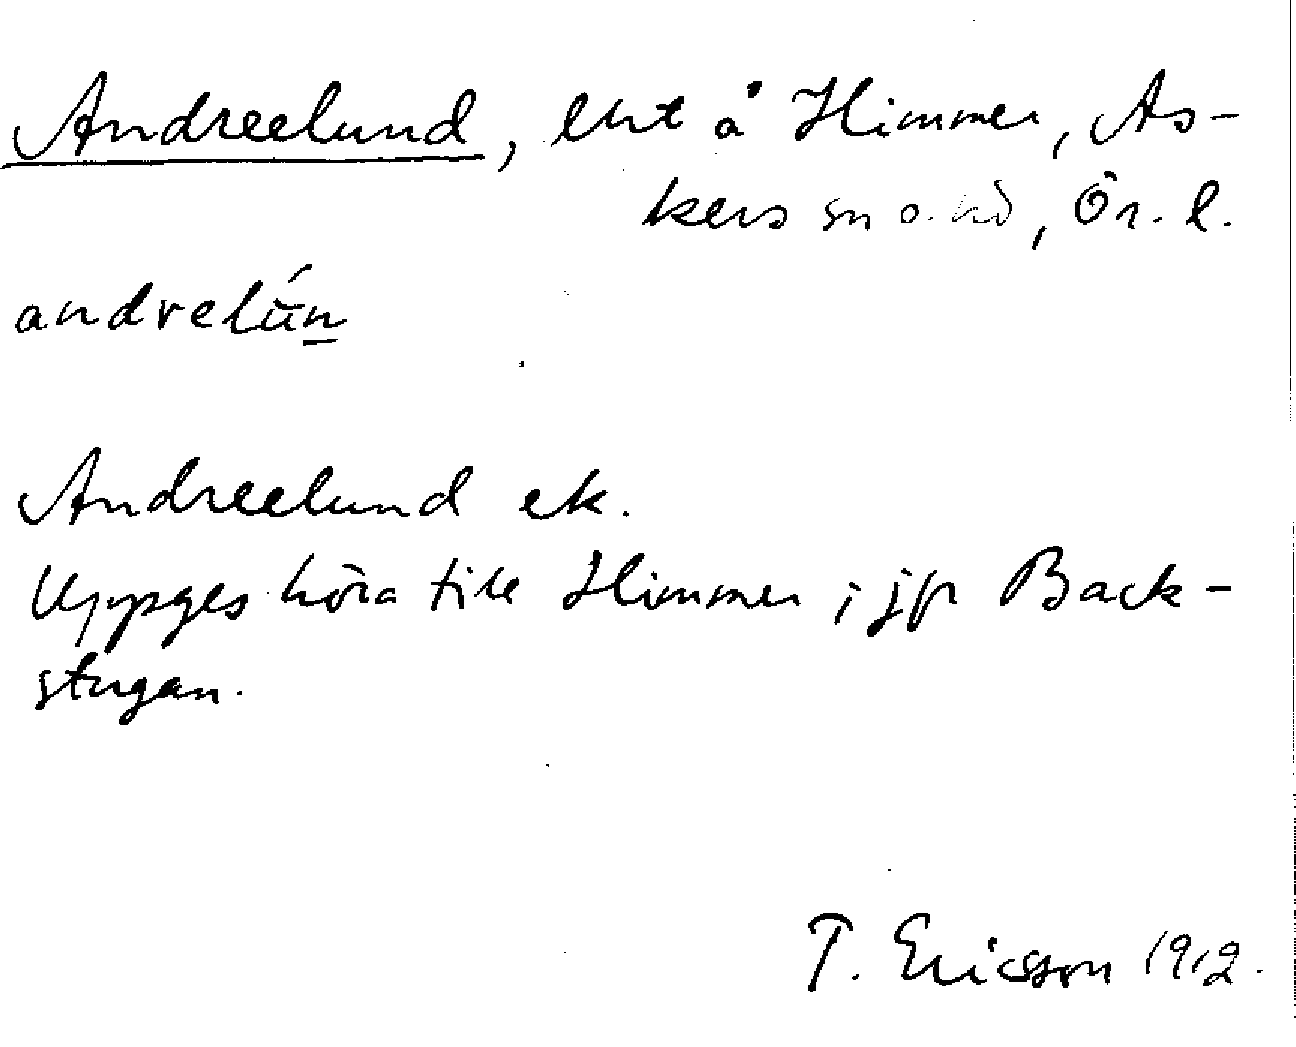 Andreelund, lht å Himmer, As-
kers sn o. hd, Ör. l.
andrelún
Andreelund ek.
Uppges höra till Himmer; jfr Back-
stugan.
T. Ericson 1912.